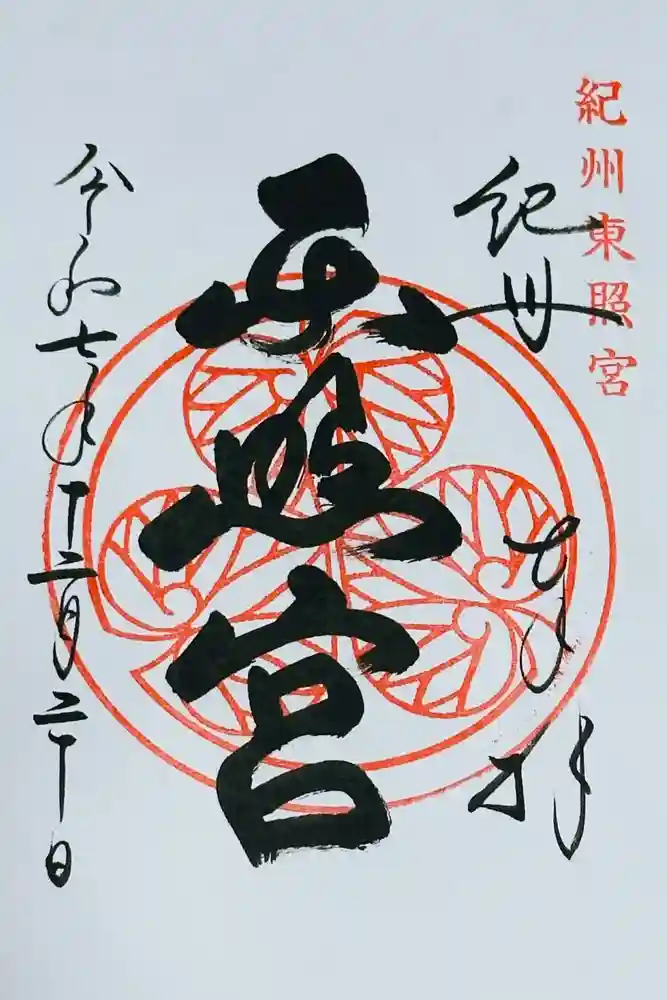 紀州東照宮
紀州
奉拝
東照宮
令和七年十二月二十日